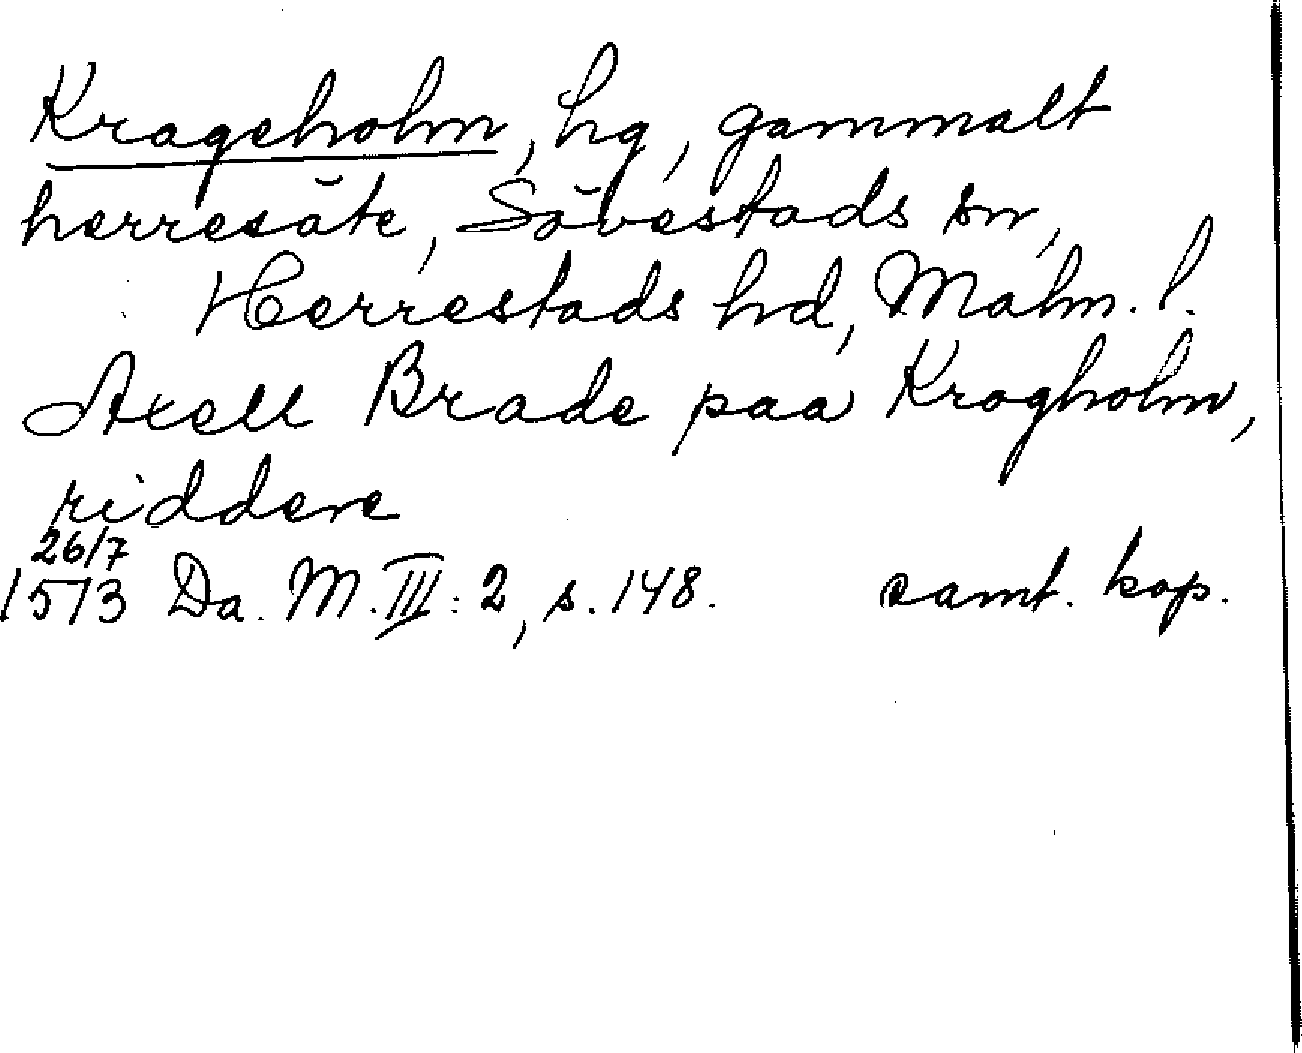 Krageholm, hg, gammalt
herresäte, Sövestads sn,
Herrestads hd, Malm. l.
Axell Brade paa Kragholm,
riddere
26/7
1513 Da. M. III: 2, s. 148. samt. kop.